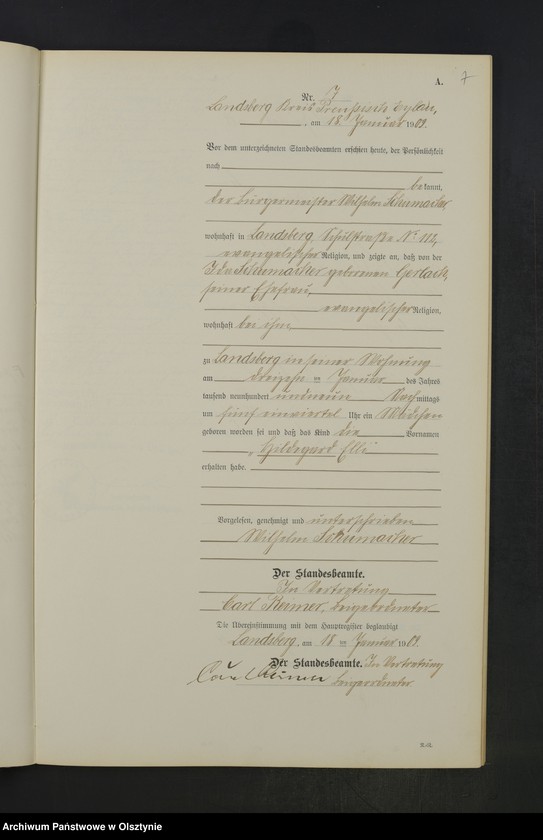 A.
7
Nr. 7
Landsberg Kreis Preussisch Eylau,
, am 18. Januar 1909.
Vor dem unterzeichneten Standesbeamten erschien heute, der Persönlichkeit
nach
bekannt,
der Bürgermeister Wilhelm Schumacher
wohnhaft in Landsberg, Schulstraße No 112,
evangelischer Religion, und zeigte an, daß von der
Ida Schumacher geborenen Gerlach,
seiner Ehefrau,
evangelischer Religion,
wohnhaft bei ihm,
zu Landsberg in seiner Wohnung
am dreizehn ten Januar des Jahres
tausend neunhundert und neun Nachmittags
um fünf einviertel Uhr ein Mädchen
geboren worden sei und daß das Kind die Vornamen
„Hildegard Elli“
erhalten habe.
Vorgelesen, genehmigt und unterschrieben
Wilhelm Schumacher
Der Standesbeamte.
In Vertretung
Carl, Beigeordneter
Die Übereinstimmung mit dem Hauptregister beglaubigt
Landsberg, am 18 ten Januar 1909.
Der Standesbeamte. In Vertretung
Carl Beigeordneter
Archiwum Państwowe w Olsztynie